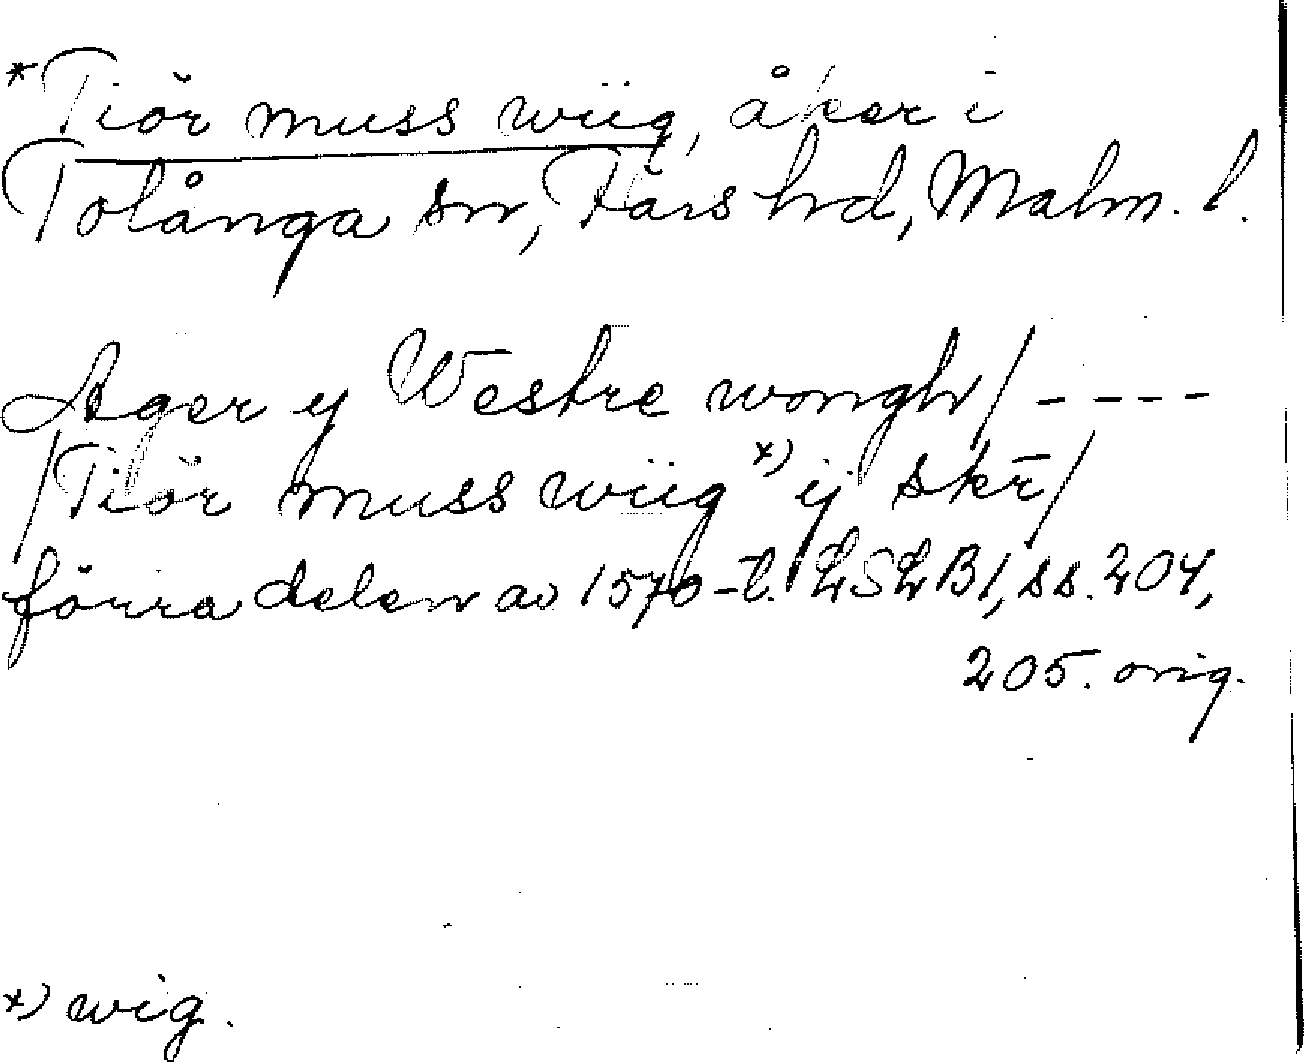 *Tiör muss wiig, åker i
Tolånga sn, Färs hd, Malm. l.
Ager y Westre wongh/ ----
/Tiör muss wiig *) ij skr̄/
förra delen av 1570-t. LSLB1, ss. 204,
205. orig.
*) wig.